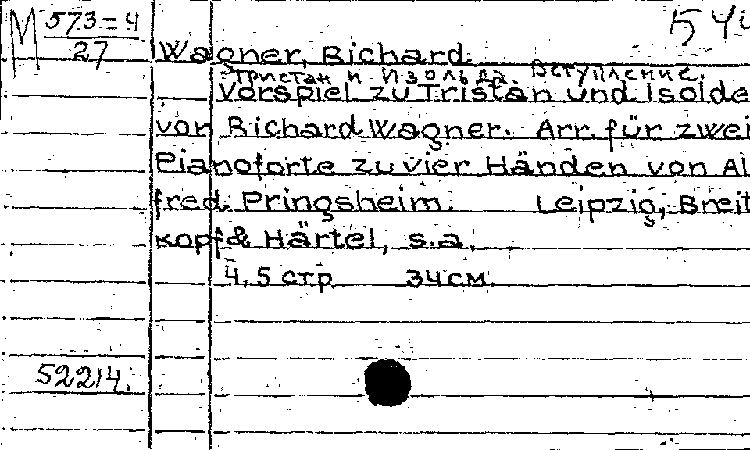 М 573-4
27
54
Wagner, Richard.
Тристан и Изольда. Вступление.
Vorspiel zu Tristan und Isolde
von Richard Wagner. Arr. für zwei
Pianoforte zu vier Händen von Al
fred Pringsheim. Leipzig, Breit
kopf & Härtel, s.a.
4,5 стр 34 см.
52214.